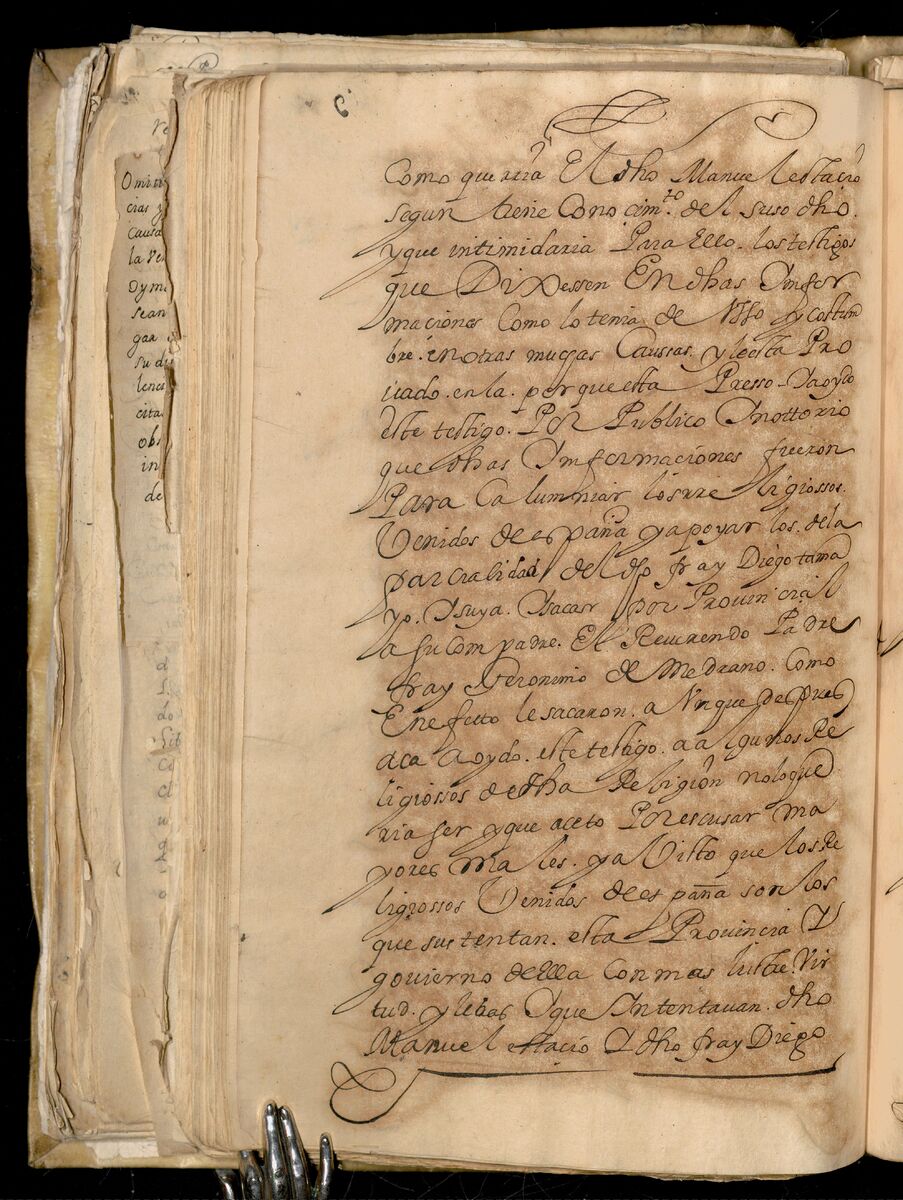 Como querria El dho Manuel estacio
segun tiene Conocim.to del suso dho.
y que intimidaria Para Ello. los testigos
que Dixessen En dhas Infor
maciones Como lo tenia de Vsso y costum
bre. en otras muchas Caussas. y lo esta Pro
uado. en la. porque esta Presso. Ya oydo
este testigo. Por Publico Y nottorio
que dhas Informaciones fueron
Para Calumniar los rreligiossos.
Venidos de españa y apoyar los. de la
parcialidad del dho fray Diego tama
yo. Y suya. Y sacar por Prouincial
a su Compadre. El Reuerendo Padre
fray Geronimo de Medrano. Como
En efecto le sacaron. a Vnque despues
aca a oydo. este testigo. a algunos Re
ligiossos de dha Religion no lo que
ria ser y que aceto Por escusar ma
yores males. y a Visto que los Re
ligiossos Venidos de españa son los
que sustentan. esta Prouincia Y
gouierno de Ella con mas lustre. Vir
tud. y letras Y que Intentauan. dho
Manuel estacio Y dho fray Diego
Omiti
cias y
Causa
la Ver
sean
su di
lenes
cita
obs
in
de